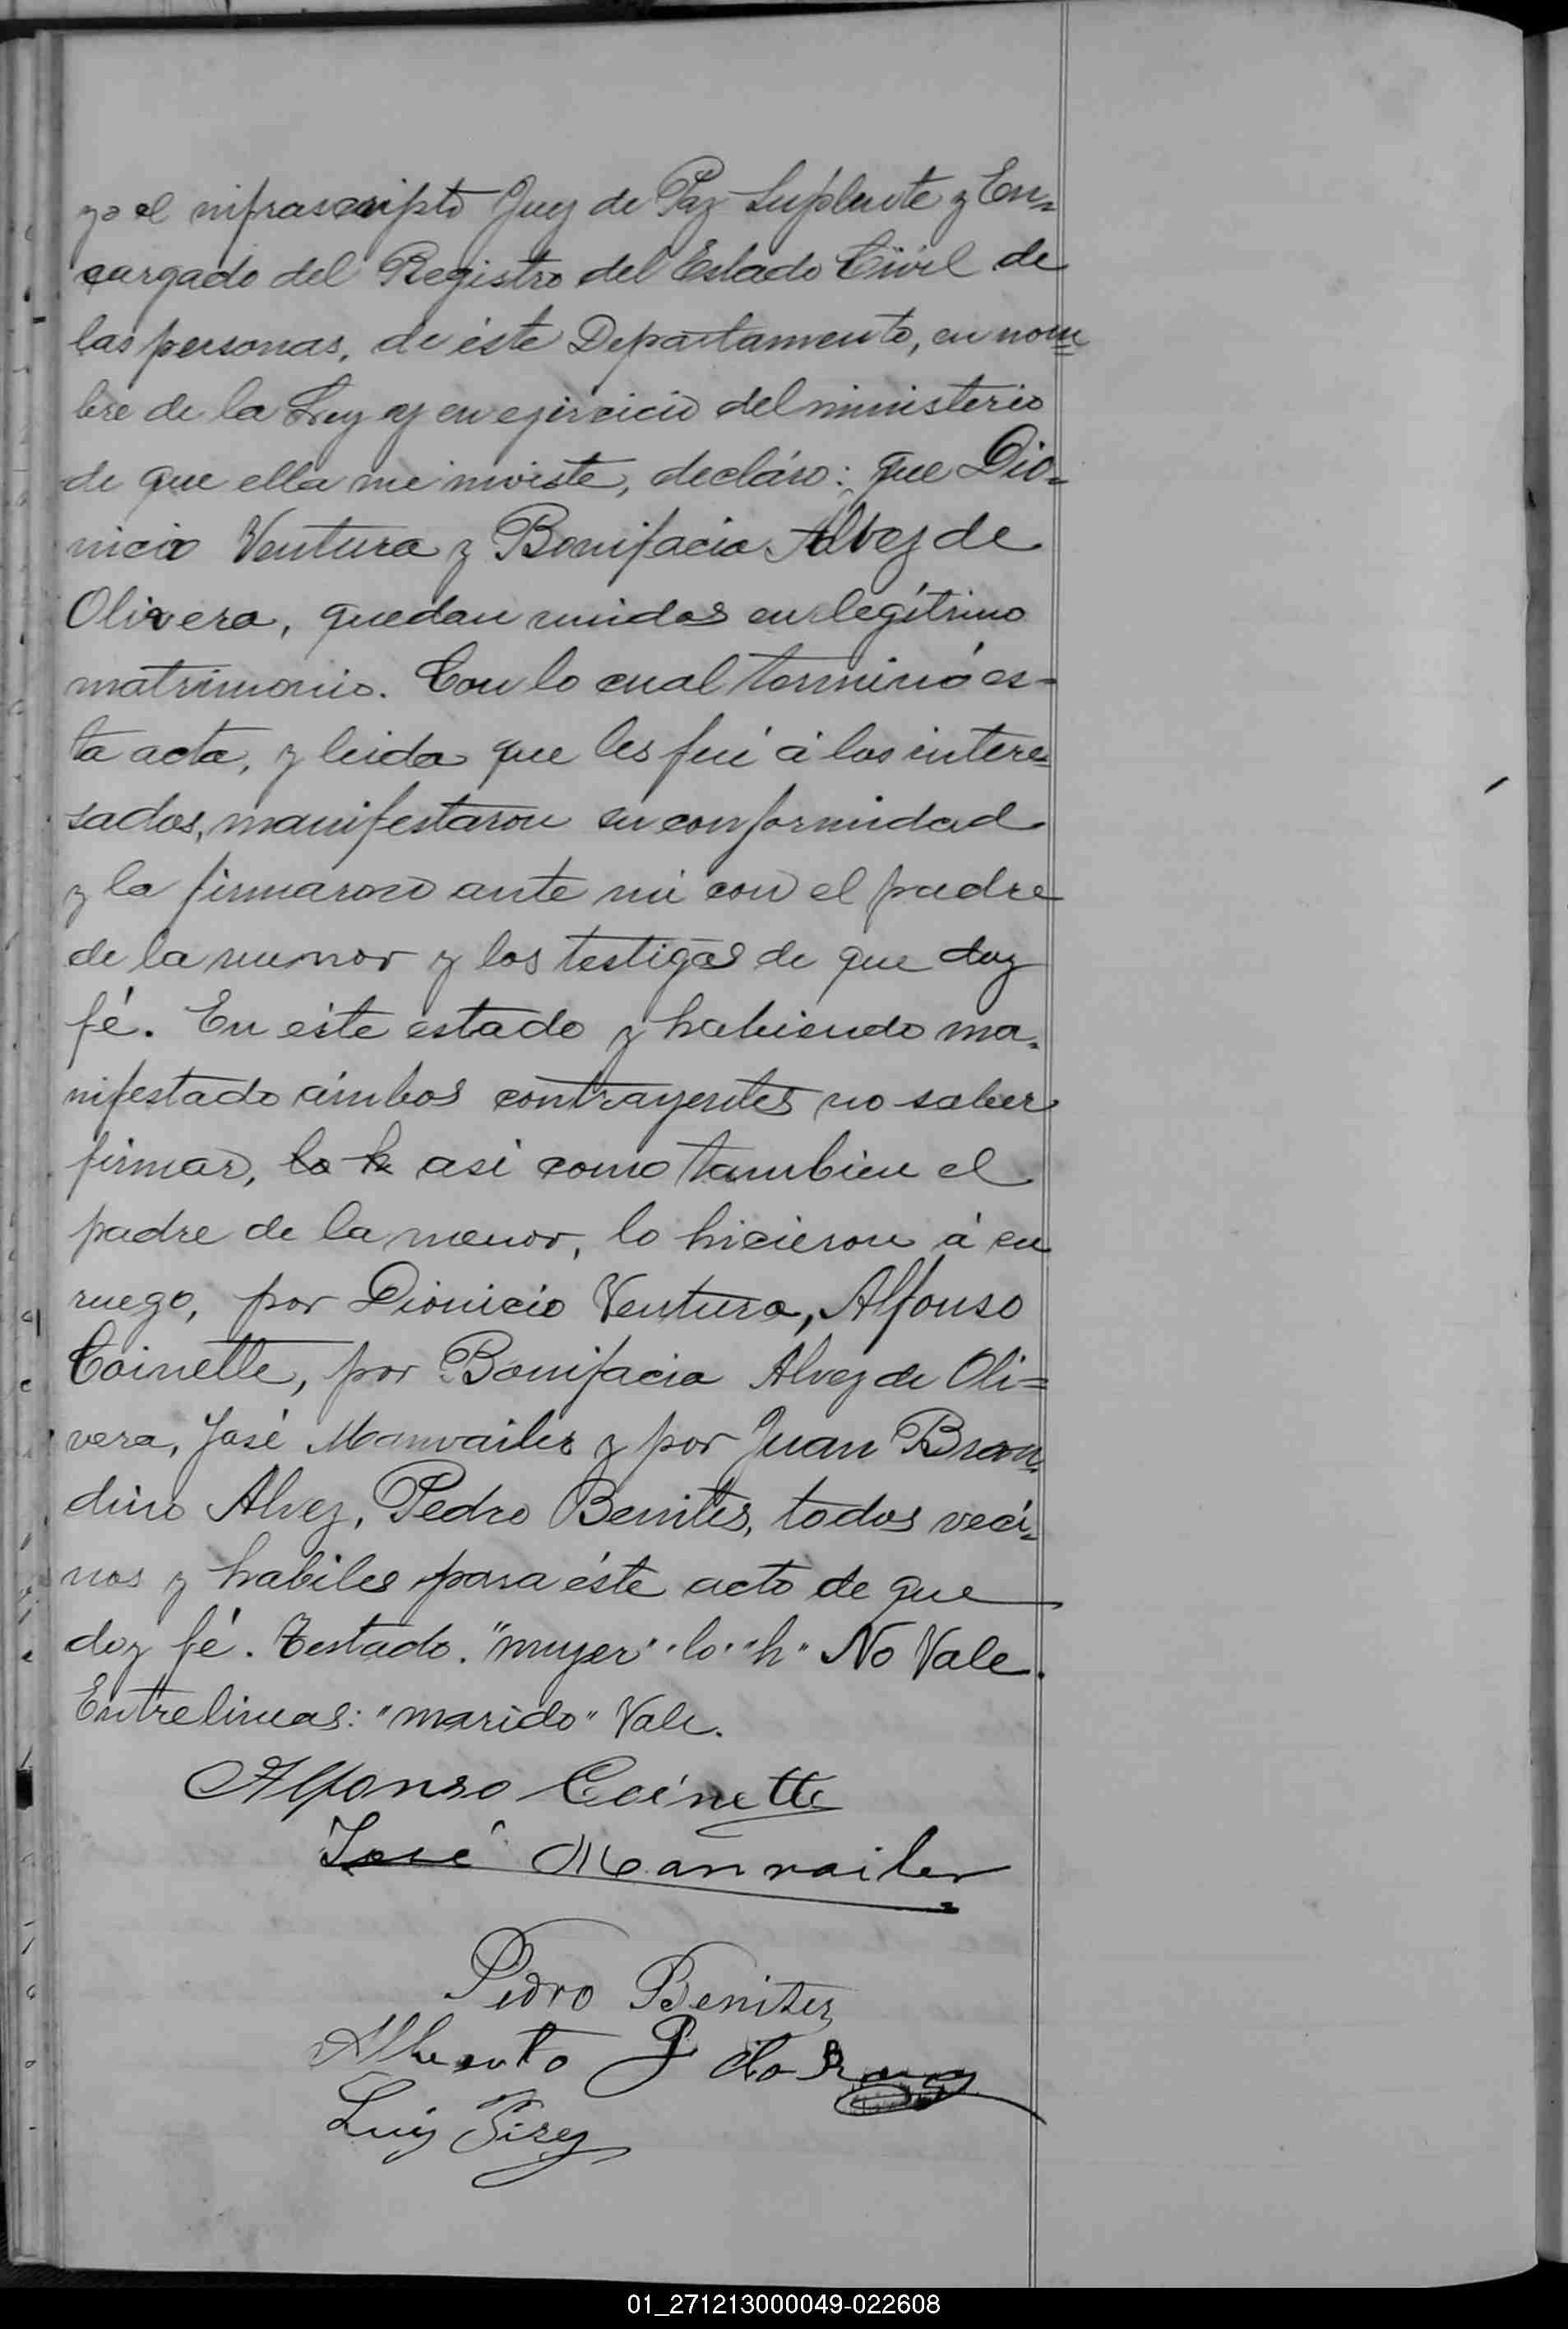 yo el infrascripto Juez de Paz Suplente y En=
cargado del Registro del Estado Civil de
las personas, de éste Departamento, en nom=
bre de la Ley y en ejercicio del ministerio
de que ella me inviste, decláro: que Dio=
nicio Ventura y Bonifacia Alvez de
Olivera, quedan unidos en legítimo
matrimonio. Con lo cual terminó es=
ta acta, y leida que les fué á los intere=
sados, manifestaron su conformidad
y la firmaron ante mi con el padre
de la menor y los testigos de que doy
fé. En éste estado y habiendo ma=
nifestado ámbos contrayentes no saber
firmar, lo h asi como tambien el
padre de la menor, lo hicieron á su
ruego, por Dionicio Ventura, Alfonso
Coinette, por Bonifacia Alvez de Oli=
vera, José Manvailer y por Juan Bran=
dino Alvez, Pedro Benites, todos veci=
nos y habiles para éste acto de que
doy fé. Testado. "mujer" "lo" "h" No Vale.
Entrelineas: "marido" Vale.
Alfonso Coinette
José Manvailer
Pedro Benitez
Alberto P da
Luiz Pirez
01_271213000049-022608